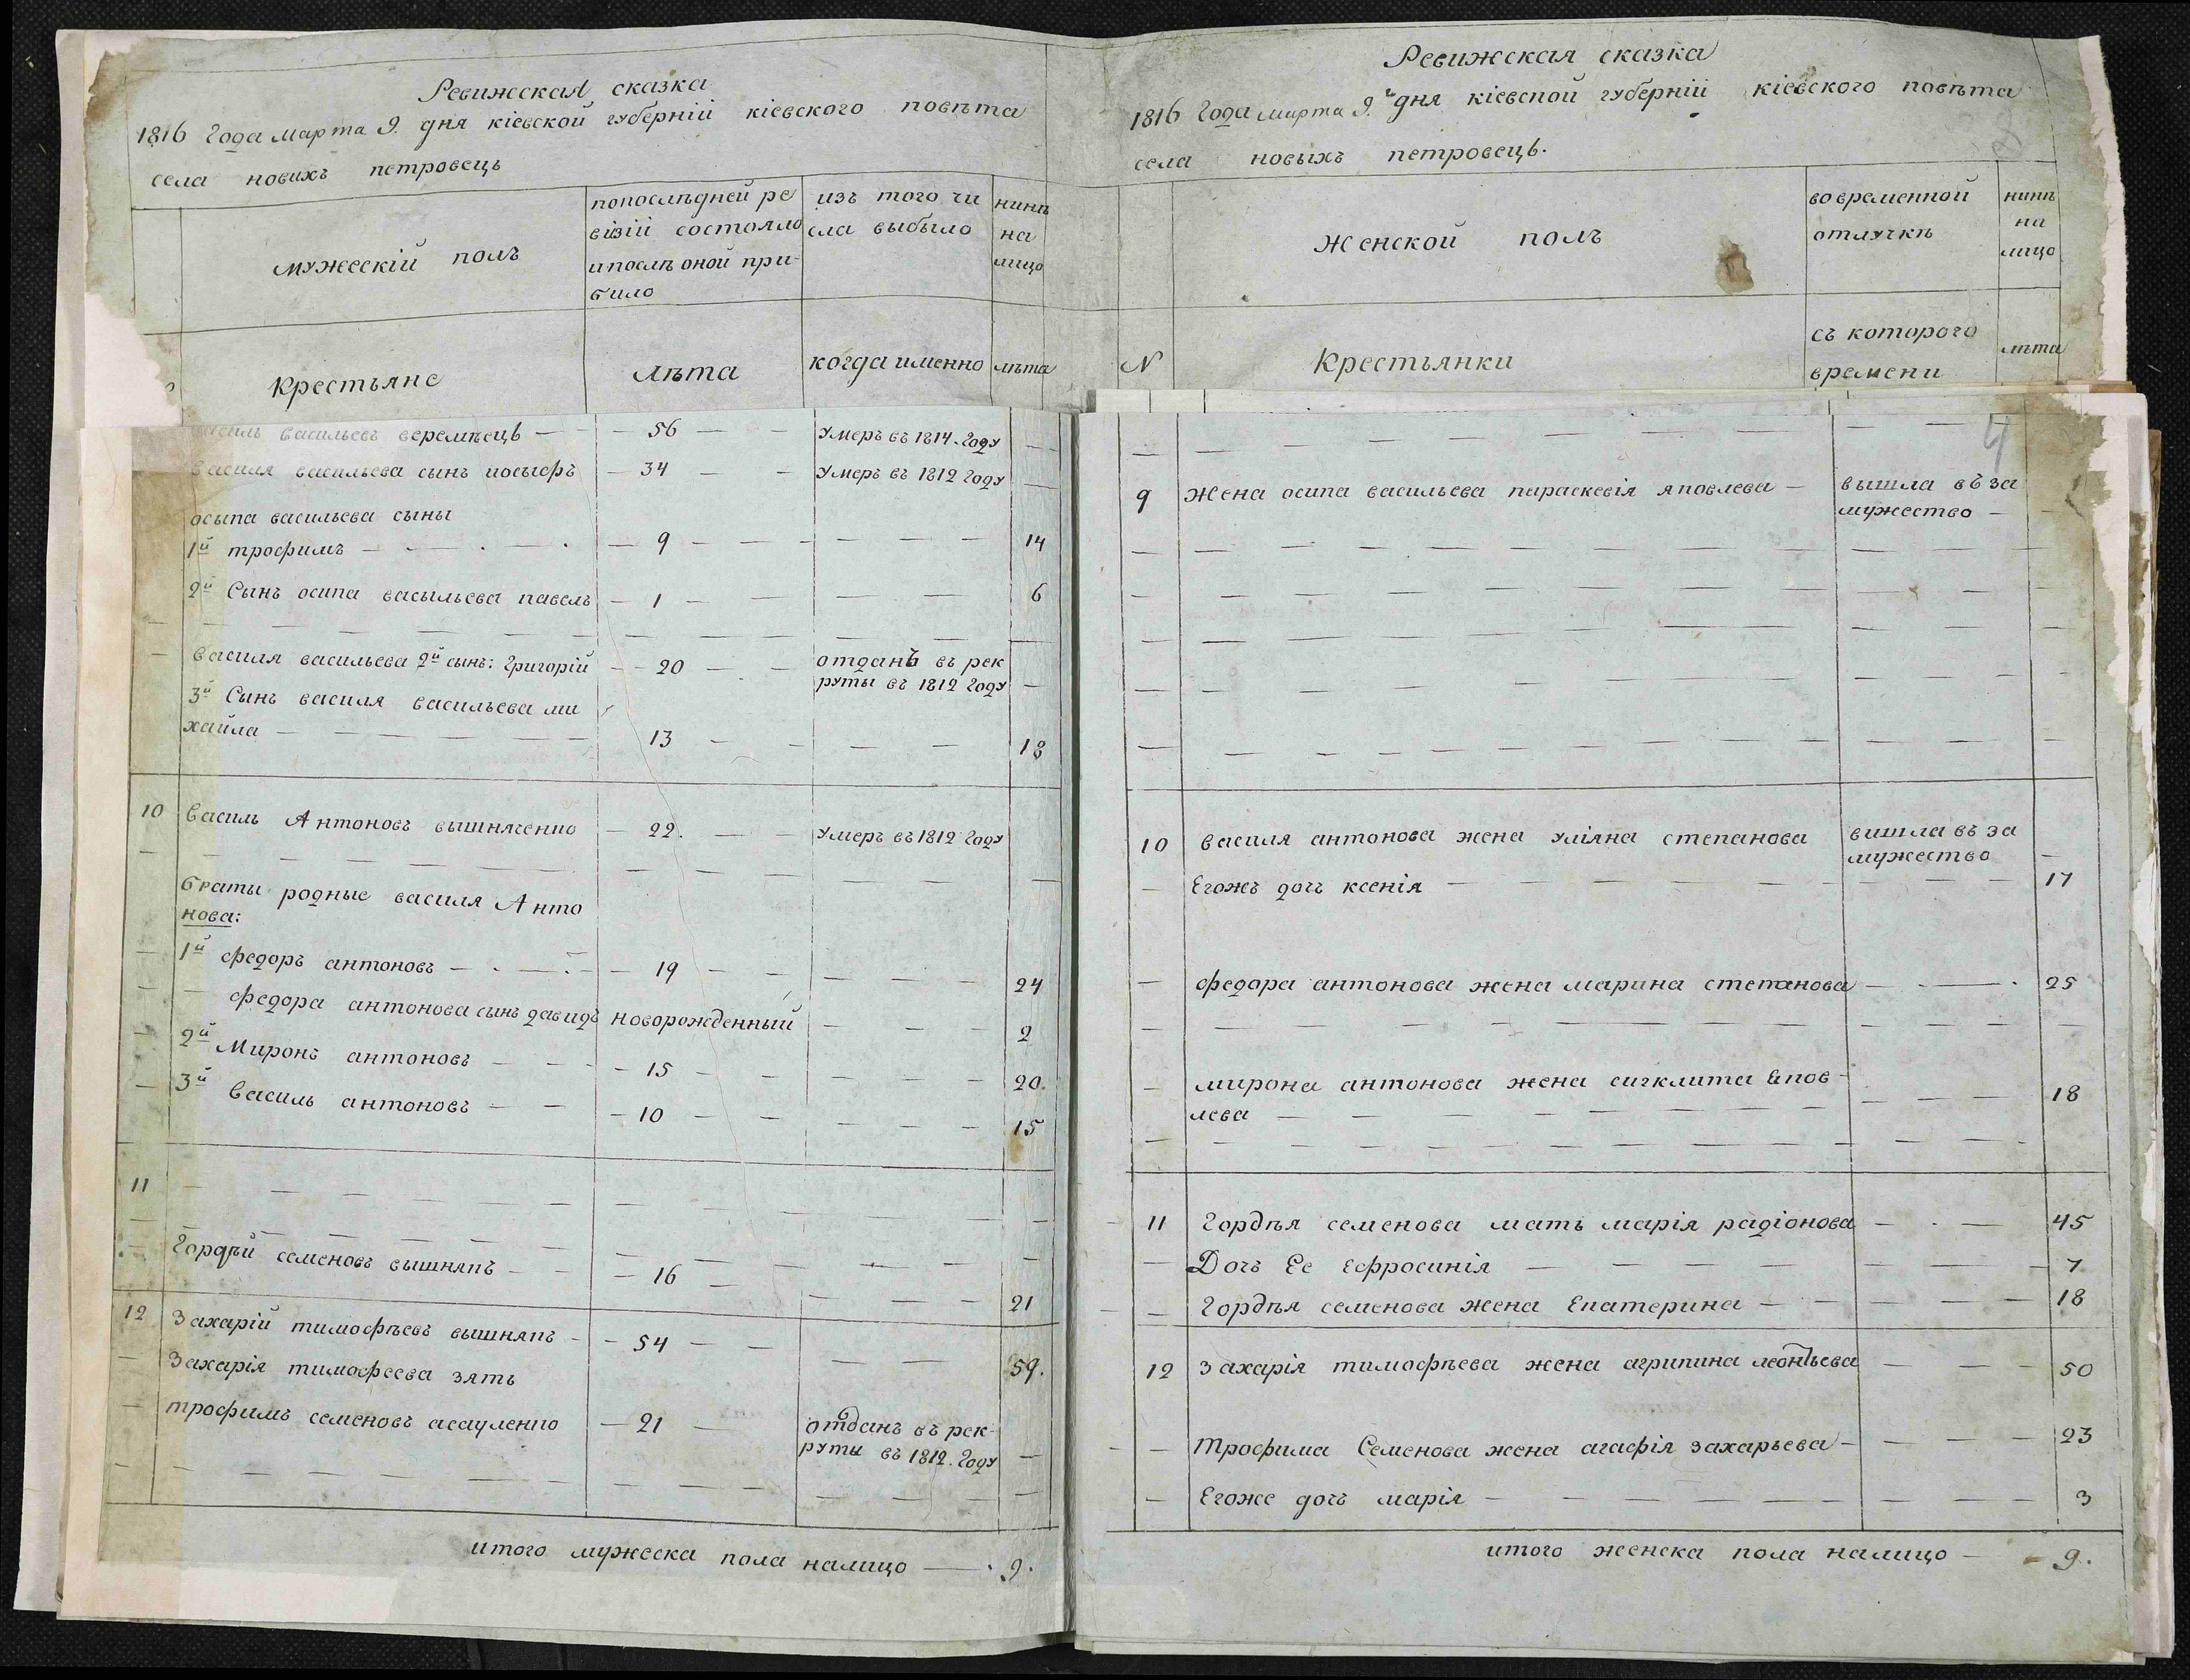 Ревижская сказка
1816 Года марта 9. дня кіевской губерніи кіевского повѣта
села новихъ петровець
мужескій полъ
попослѣдней ре
візіи состояло
ипослѣ оной при-
било
изъ того чи
сла выбыло
нинѣ
на
лицо
крестьяне
лѣта
когда именно
лѣта
василь васильевъ веремѣець — 56 — умеръ въ 1814. Году —
василя васильева сынъ иосыфъ — 34 — умеръ въ 1812 Году —
осыпа васильева сыны
1й трофимъ — 9 — 14
2й Сынъ осипа васыльева павелъ — 1 — 6
василя васильева 2й сынъ: Григорій — 20 — отданъ въ рек
руты въ 1812 Году —
3й Сынъ василя васильева ми
хайла — 13 — 18
10 василь Антоновъ вышняченко — 22. — умеръ въ 1812 Году
браты родные василя Анто
нова:
1й федоръ антоновъ — 19 — 24
федора антонова сынъ давидъ новорожденный — 2
2й Миронъ антоновъ — 15 — 20.
3й Василь антоновъ — 10 — 15
11
Гордѣй семеновъ вышнякъ — 16 — 21
12 Захарій тимофѣевъ вышнякъ — 54 — 59.
Захарія тимофеева зять
трофимъ семеновъ асауленко — 21 — отданъ въ рек-
руты въ 1812. Году —
итого мужеска пола налицо — 9.
Ревижская сказка
1816 Года марта 9.й дня кіевской губерніи кіевского повѣта
села новыхъ петровець.
Женской полъ
вовременной
отлучкѣ
нинѣ
на
лицо
N
Крестьянки
съ которого
времени
лѣта
4
9 жена осипа васильева параскевія яковлева — вышла въ за
мужество —
10 василя антонова жена уліяна степанова вишла въ за
мужество —
Егожъ дочъ ксенія — 17
федора антонова жена марина степанова — 25
мирона антонова жена сигклита Яков-
лева — 18
11 Гордѣя семенова мать марія радіонова — 45
Дочъ Ее ефросинія — 7
Гордѣя семенова жена Екатерина — 18
12 Захарія тимофѣева жена агрипина леонтьева — 50
Трофима Семенова жена агафія захарьева — 23
Егоже дочъ марія — 3
итого женска пола налицо — 9.